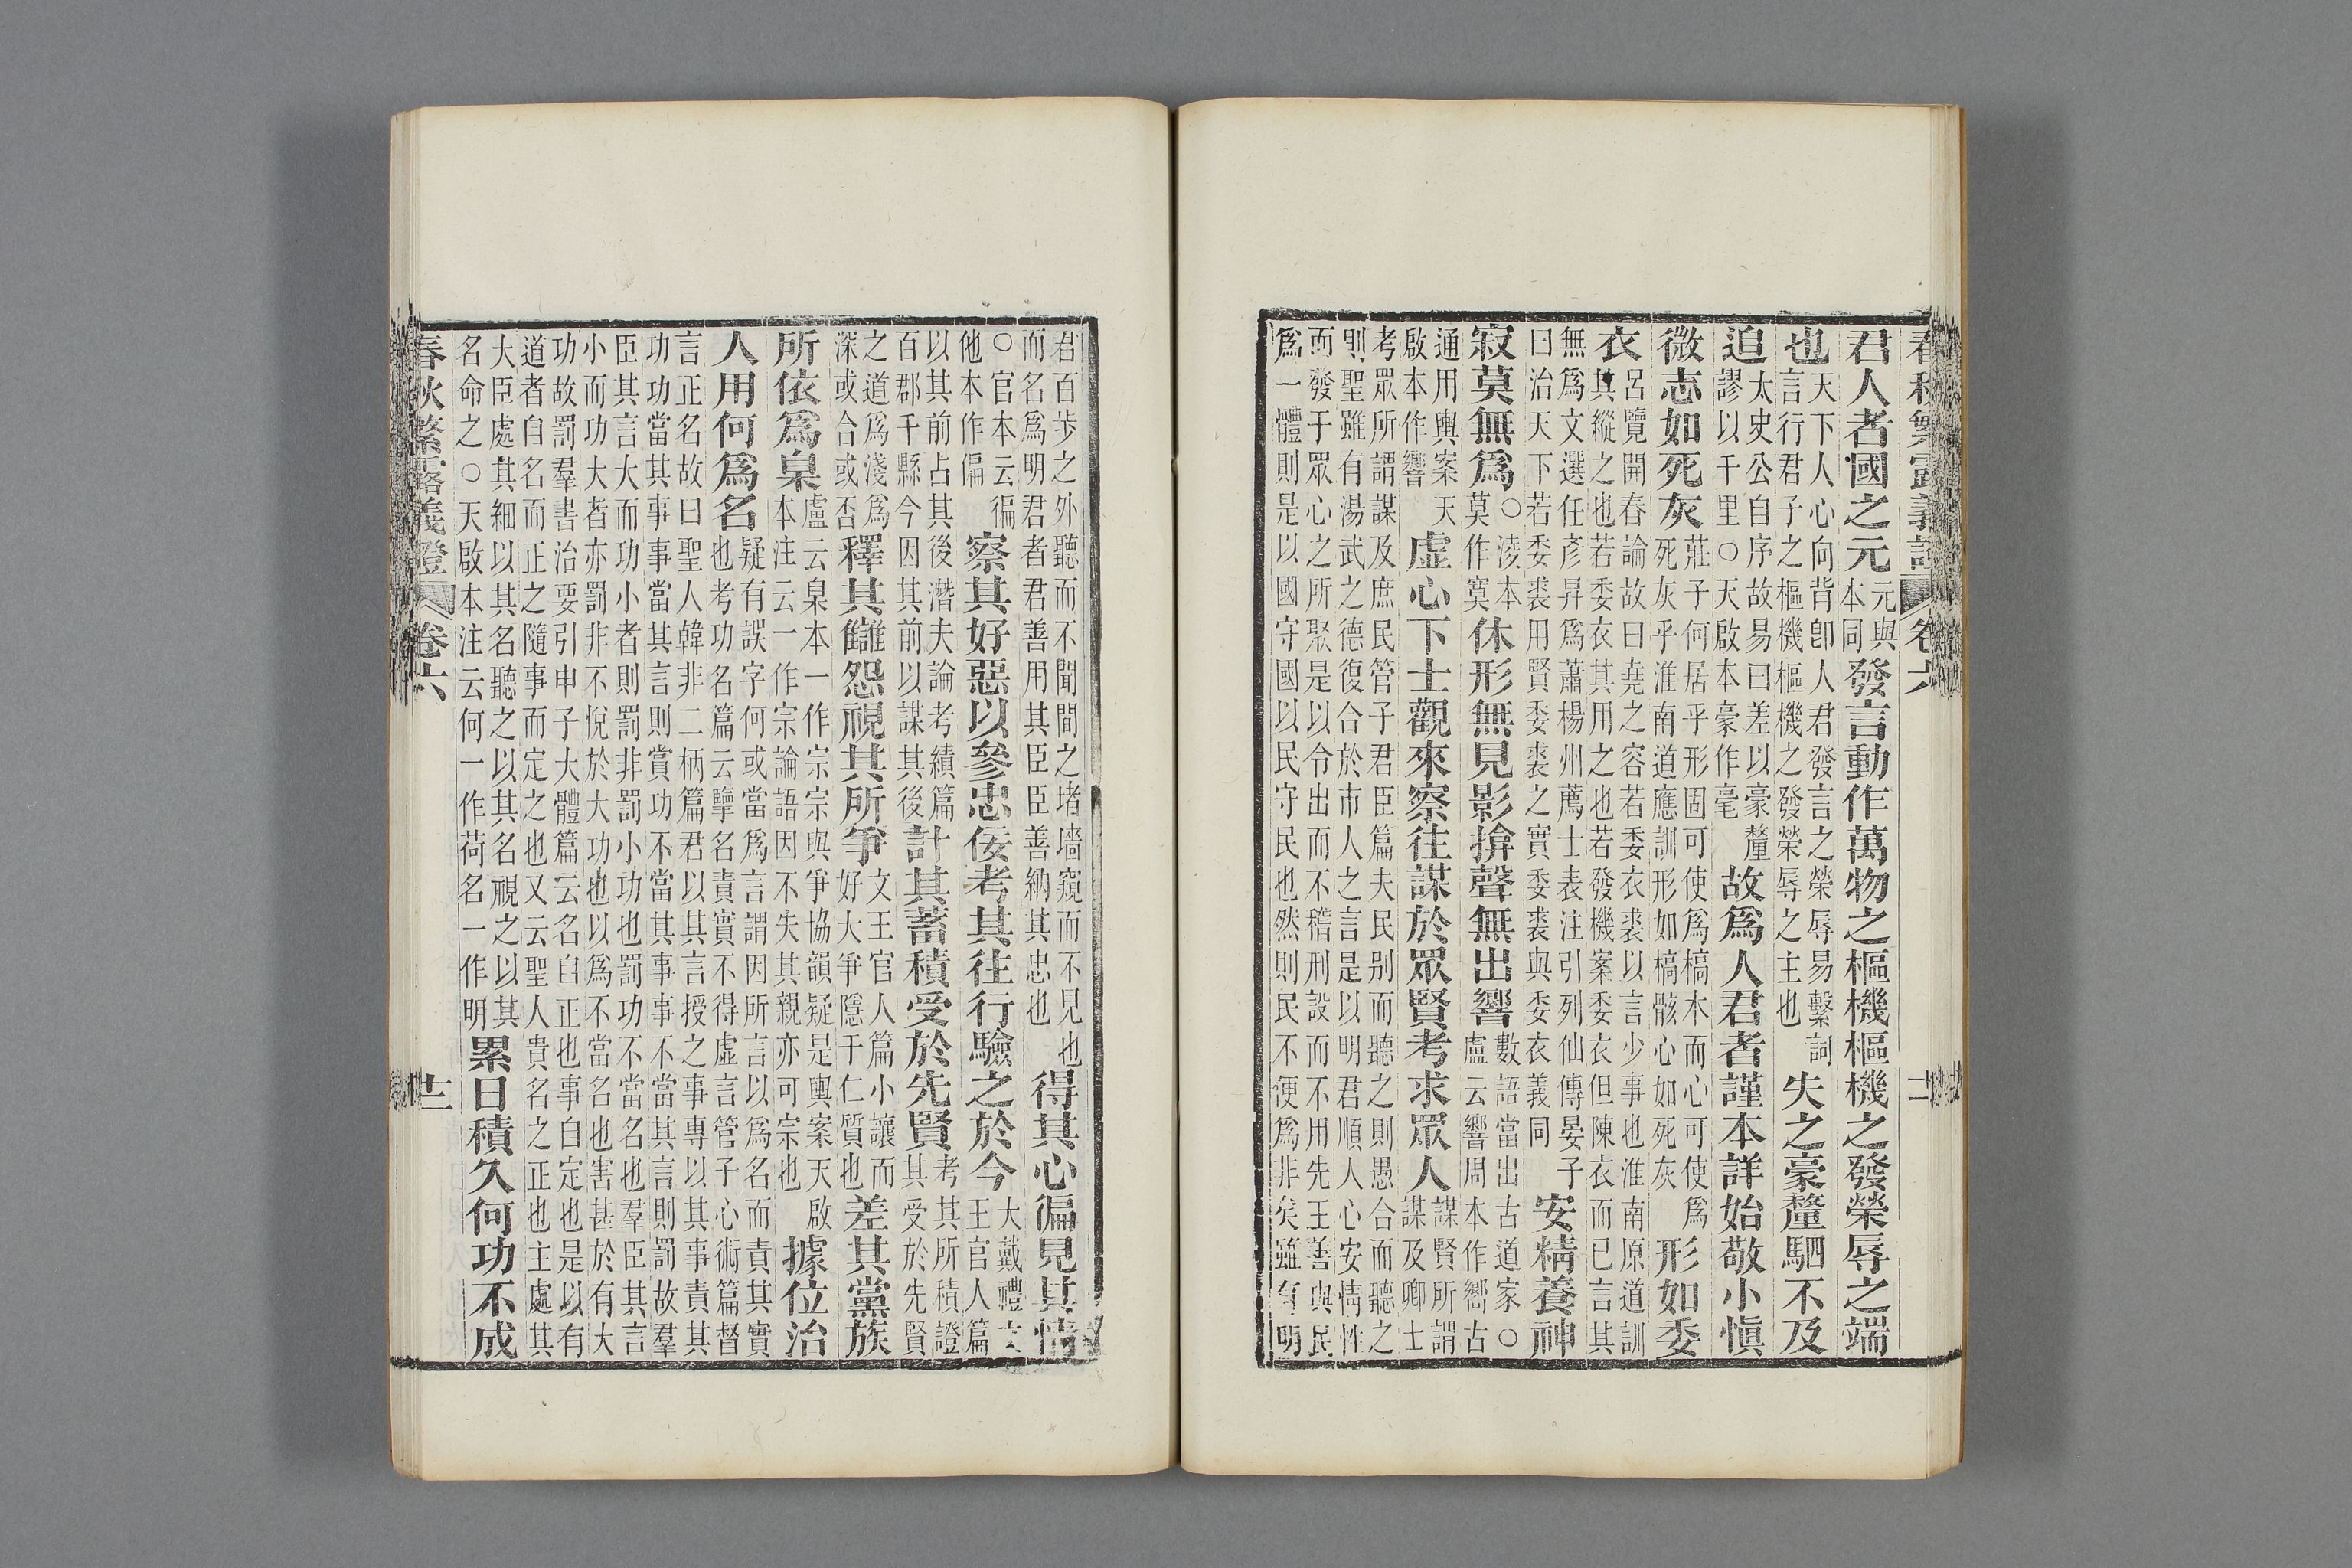 春秋繁露義證 卷六
君人者國之元
元與
本同
發言動作萬物之樞機樞機之發榮辱之端
也
天下人心向背卽人君發言之榮辱易繫詞
言行君子之樞機樞機之發榮辱之主也
失之豪釐駟不及
追
太史公自序故易曰差以豪釐
謬以千里○天啟本豪作毫
故爲人君者謹本詳始敬小愼
微志如死灰
莊子何居乎形固可使爲槁木而心可使爲
死灰乎淮南道應訓形如槁骸心如死灰
形如委
衣
呂覽開春論故曰堯之容若委衣裘以言少事也淮南原道訓
其縱之也若委衣其用之也若發機案委衣但陳衣而已言其
無爲文選任彥昇爲蕭楊州薦士表注引列仙傳晏子
曰治天下若委裘用賢委裘之實委裘與委衣義同
安精養神
寂莫無爲
○淩本
莫作寞
休形無見影揜聲無出響
數語當出古道家○
盧云響周本作嚮古
通用輿案天
啟本作響
虛心下士觀來察往謀於眾賢考求眾人
謀賢所謂
謀及卿士
考眾所謂謀及庶民管子君臣篇夫民別而聽之則愚合而聽之
則聖雖有湯武之德復合於市人之言是以明君順人心安情性
而發于眾心之所聚是以令出而不稽刑設而不用先王善與民
爲一體則是以國守國以民守民也然則民不便爲非矣雖有明
君百步之外聽而不聞閒之堵墻窺而不見也
而名爲明君者君善用其臣臣善納其忠也
得其心徧見其情
○官本云徧
他本作偏
察其好惡以參忠佞考其往行驗之於今
大戴禮文
王官人篇
以其前占其後潛夫論考績篇
百郡千縣今因其前以謀其後
計其蓄積受於先賢
考其所積證
其受於先賢
之道爲淺爲
深或合或否
釋其讎怨視其所爭
文王官人篇小讓而
好大爭隱于仁質也
差其黨族
所依爲臬
盧云臬本一作宗宗與爭協韻疑是輿案天啟
本注云一作宗論語因不失其親亦可宗也
據位治
人用何爲名
疑有誤字何或當爲言謂因所言以爲名而責其實
也考功名篇云擥名責實不得虛言管子心術篇督
言正名故曰聖人韓非二柄篇君以其言授之事專以其事責其
功功當其事事當其言則賞功不當其事事不當其言則罰故羣
臣其言大而功小者則罰非罰小功也罰功不當名也羣臣其言
小而功大者亦罰非不悅於大功也以爲不當名也害甚於有大
功故罰羣書治要引申子大體篇云名自正也事自定也是以有
道者自名而正之隨事而定之也又云聖人貴名之正也主處其
大臣處其細以其名聽之以其名視之以其
名命之○天啟本注云何一作荷名一作明
累日積久何功不成
春秋繁露義證 卷六